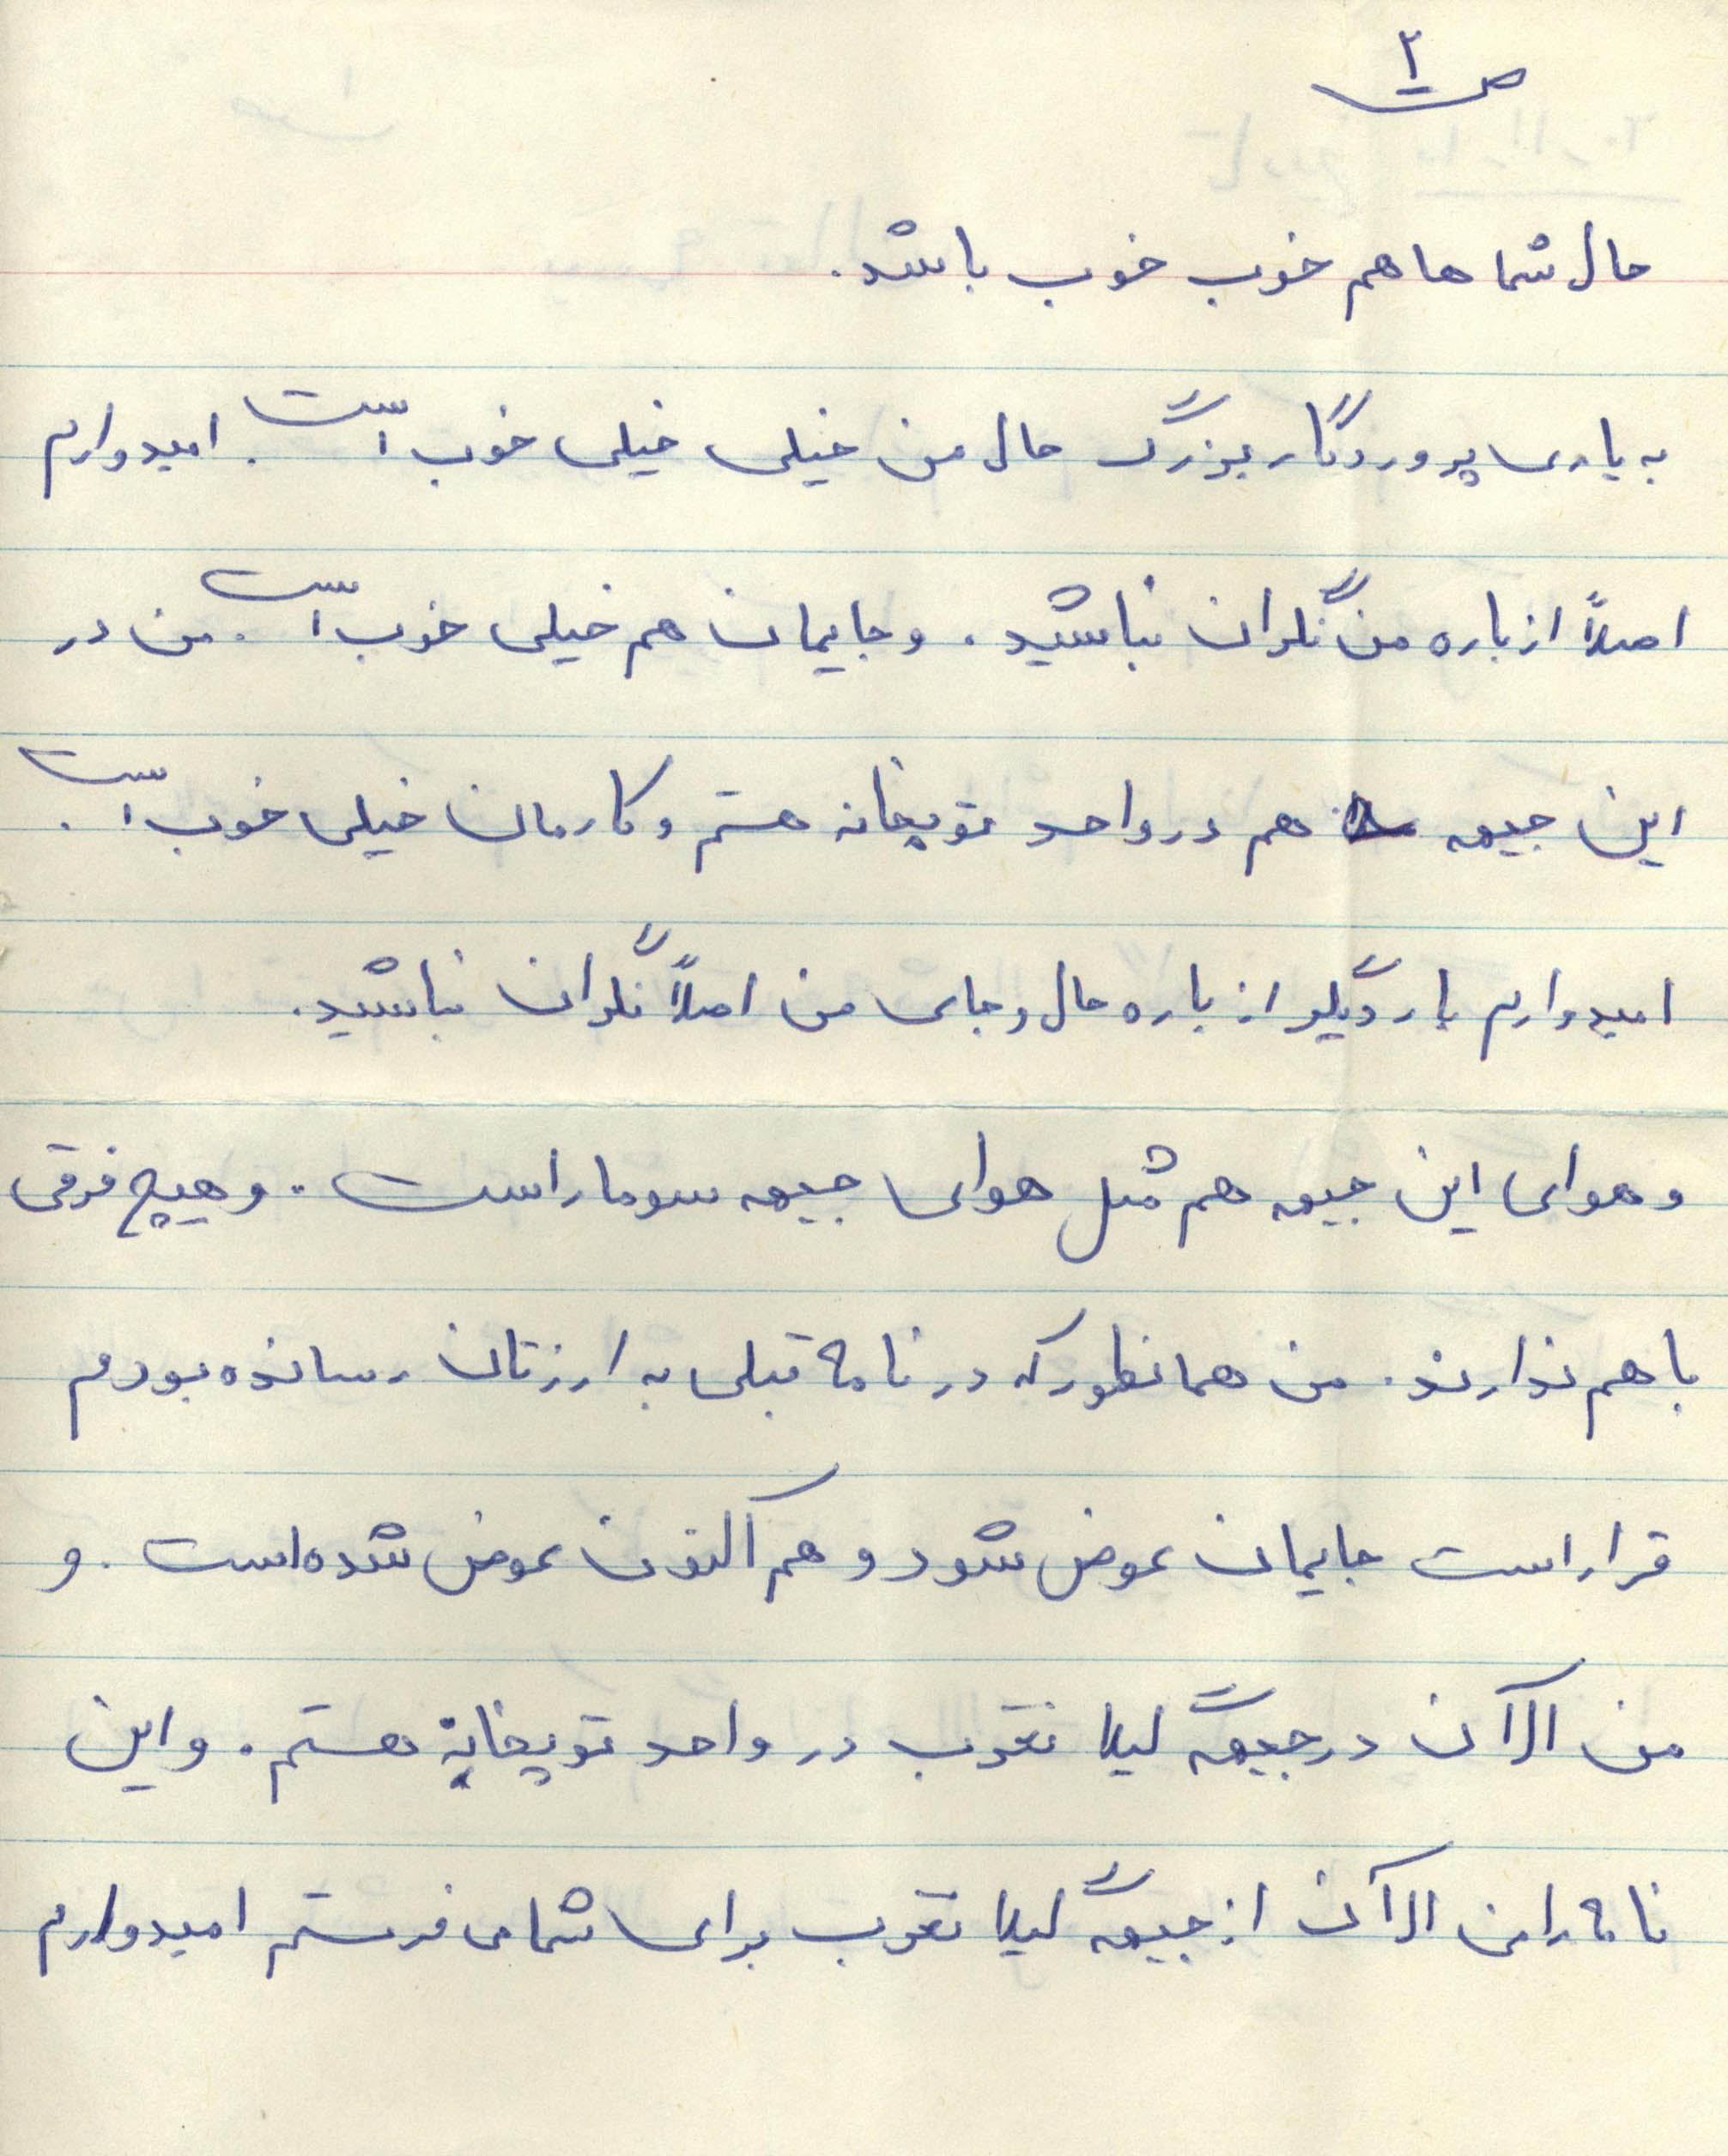 ص ۲
حال شما ها هم خوب خوب باشد.
به یاری پروردگار بزرگ حال من خیلی خیلی خوب است. امیدوارم
اصلاً از باره من نگران نباشید. و جایمان هم خیلی خوب است. من در
این جبهه هم در واحد توپخانه هستم و کارمان خیلی خوب است.
امیدوارم بار دیگر از باره حال و جای من اصلاً نگران نباشید.
و هوای این جبهه هم مثل هوای جبهه سومار است. و هیچ فرقی
با هم ندارند. من همانطور که در نامه قبلی به ارزتان رسانده بودم
قرار است جایمان عوض شود و هم اکنون عوض شده است. و
من الآن در جبهه گیلا نغرب در واحد توپخانهٔ هستم. و این
نامه را من الآن از جبهه گیلا نغرب برای شما می فرستم امیدوارم